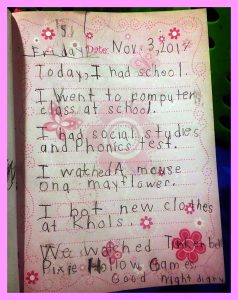 Friday Date: Nov. 3, 2017
Today, I had school.
I went to computer
class at school.
I had social studies
and Phonics test.
I watched A mouse
on a mayflower.
I bot new clothes
at Khols.
We watched Tinkerbell
Pixie Hollow Games.
Good night diary